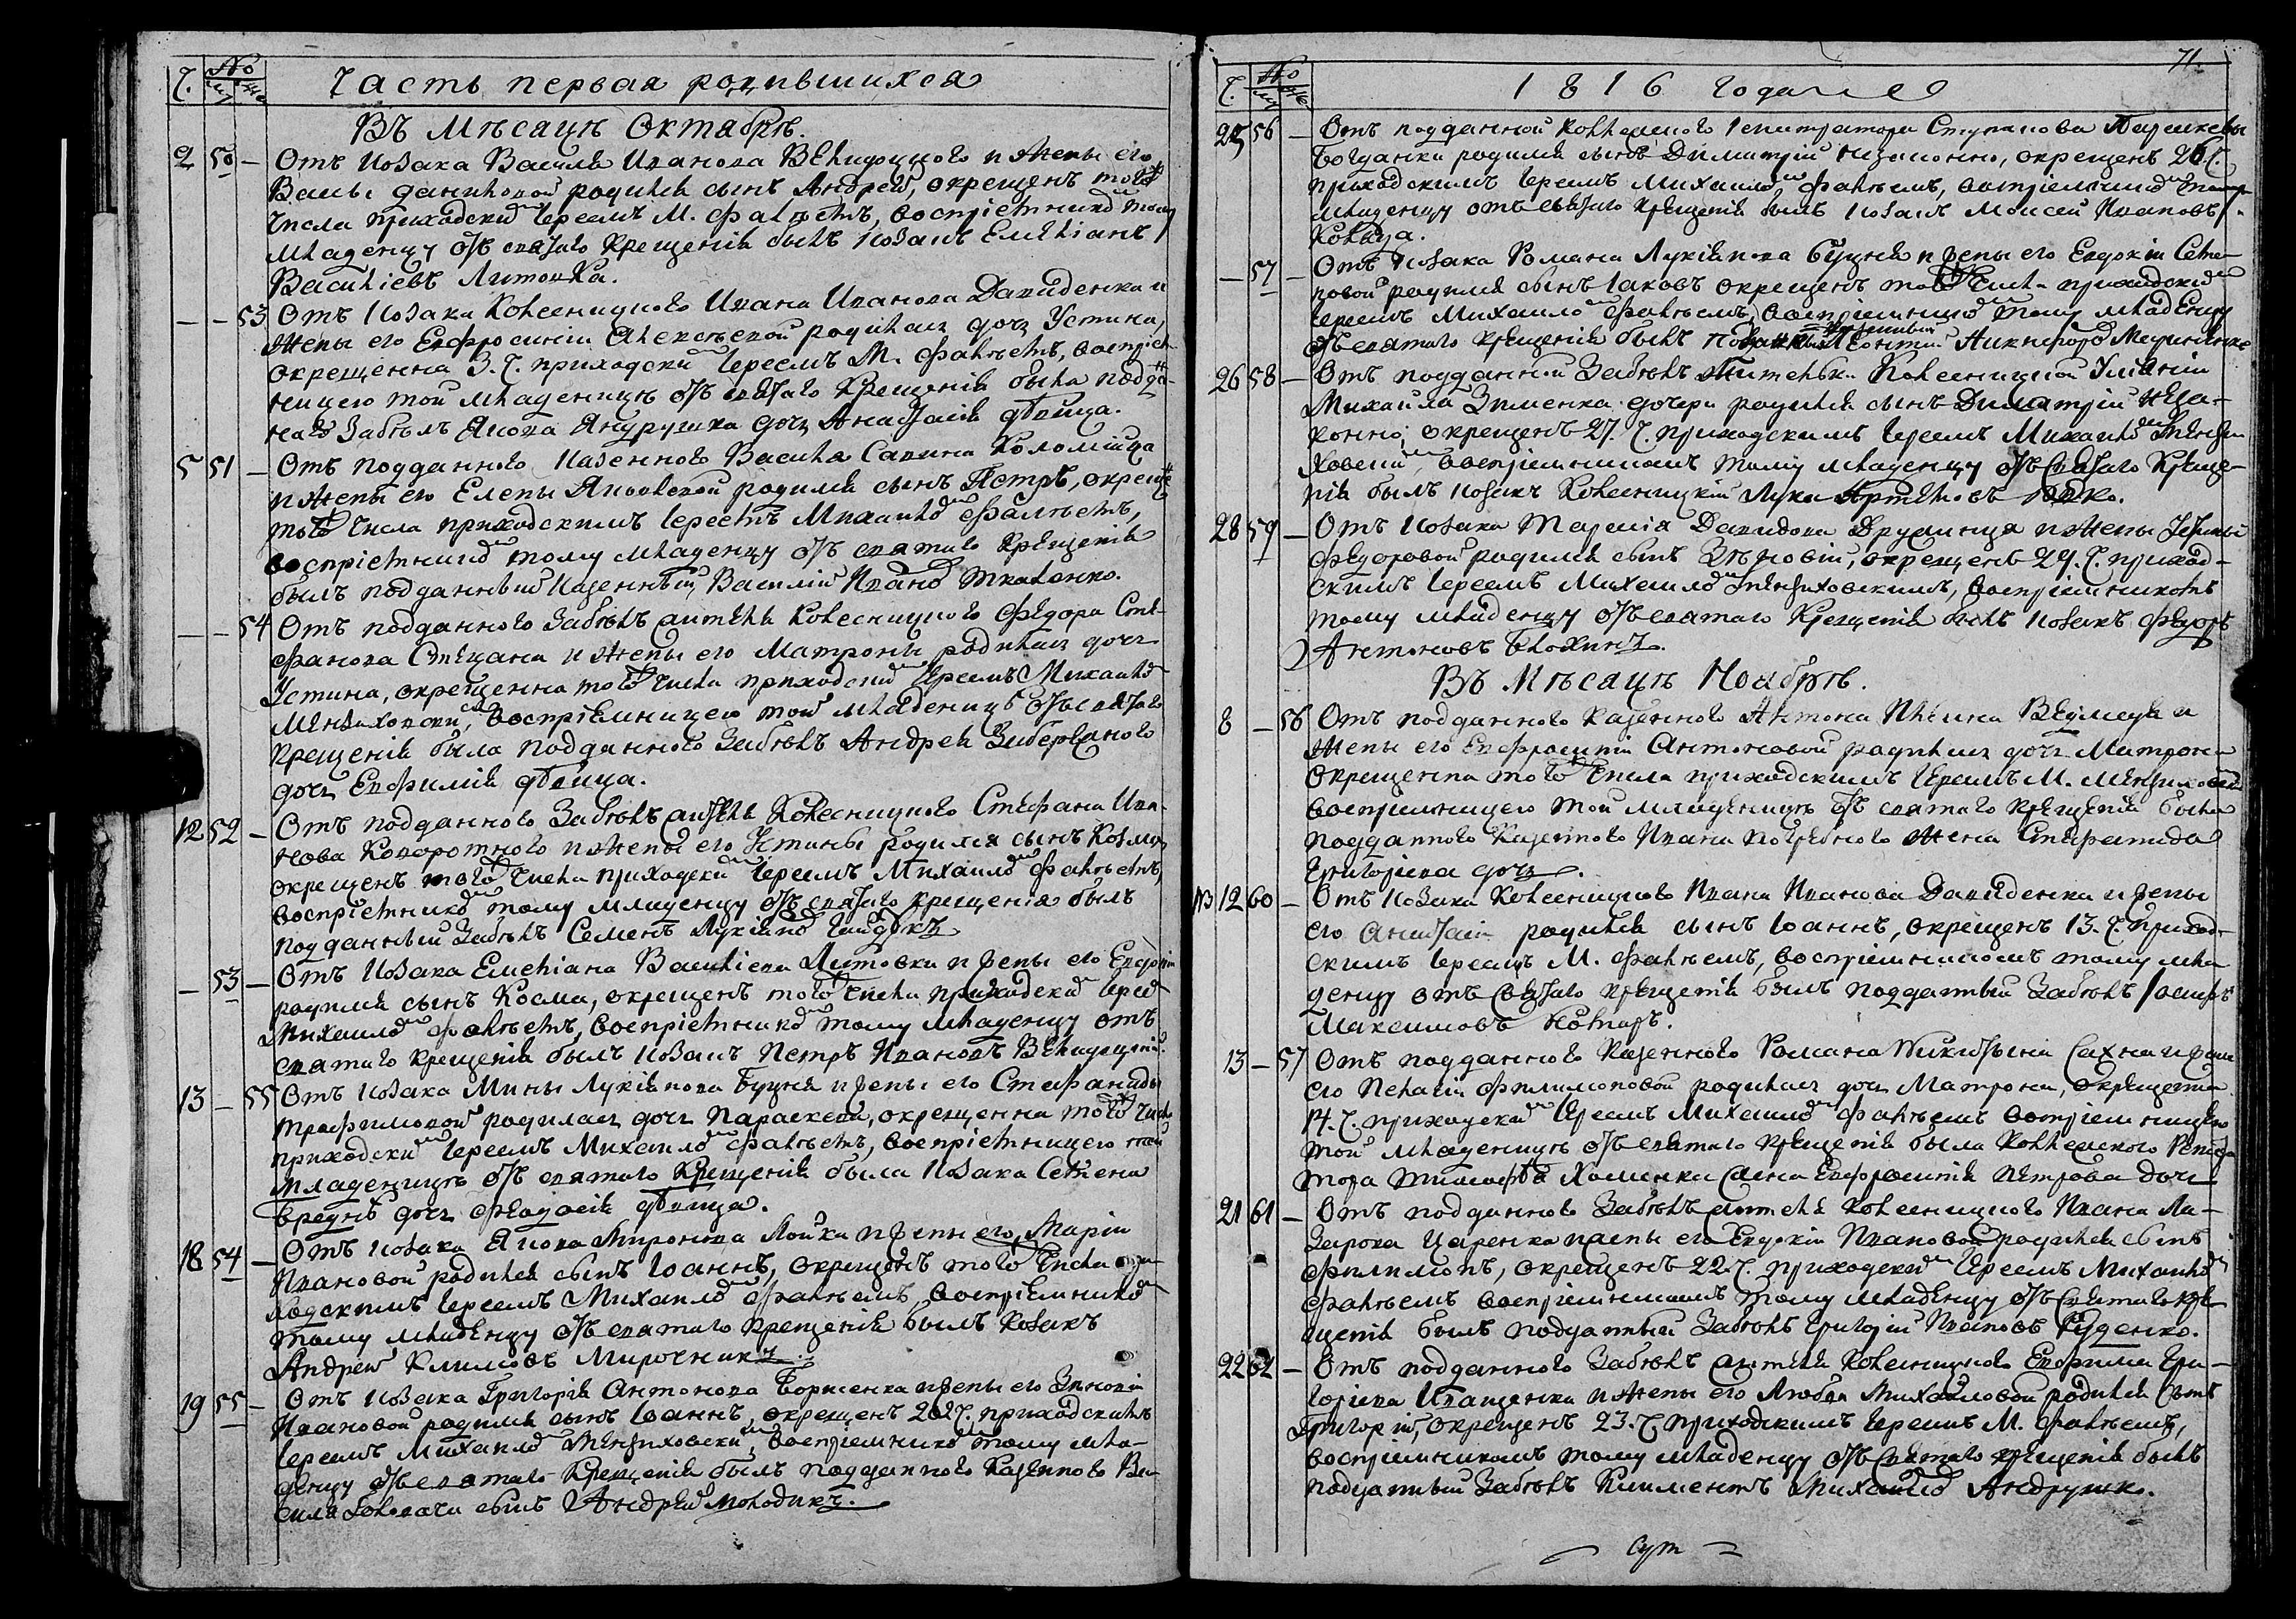 Ч. № Часть первая родившихся
Въ Мѣсяцѣ Октябрѣ.
2 50 – Отъ козака Василя Иванова Великоцкого и жены его
родился сынъ Андрей, окрещенъ того
числа приходскимъ Іереемъ М. Фалѣемъ, воспріемникомъ тому
младенцу отъ святаго крещенія былъ козакъ Емеліанъ
Василіевъ Литовка.
– – 53 Отъ козака Колесницкого Ивана Ивановa Давиденка и
жены его Евфросиніи Алексѣевой родилась дочь Устина,
окрещенна 3. Ч. приходскимъ Іереемъ М. Фалѣемъ, воспріем-
ницею той младеницѣ отъ святаго крещенія была подда-
наго Забѣлъ Якова Андрушка дочь Анастасія дѣвица.
5 51 – Отъ подданного казенного Василя Савина Коломійца
и жены его Елены Яковлевой родился сынъ Петръ, окрещенъ
того числа приходскимъ Іереемъ Михаиломъ Фалѣемъ,
воспріемникомъ тому младенцу отъ святаго крещенія
былъ подданный казенный Василій Ивановъ Ткаченко.
– – 54 Отъ подданного Забѣлъ Колесницкого Федора Сте-
фанова и жены его Матроны родилась дочь
Устина, окрещенна того числа приходскимъ Іереемъ Михаиломъ
Мензиховскимъ, воспріемницею той младеницѣ отъ святаго
крещенія была подданного Забѣлъ Андрея
дочь Евфимія дѣвица.
12 52 – Отъ подданного Забѣлъ Колесницкого Стефана Ива-
нова Коворотного и жены его Устины родился сынъ Козма,
окрещенъ того числа приходскимъ Іереемъ Михаиломъ Фалѣемъ,
воспріемникомъ тому младенцу отъ святаго крещенія былъ
подданный Забѣлъ Семенъ Лукіяновъ
– 53 – Отъ козака Емеліана Василіева Литовки и жены его Евдокіи
родился сынъ Косма, окрещенъ того числа приходскимъ Іереемъ
Михаиломъ Фалѣемъ, воспріемникомъ тому младенцу отъ
святаго крещенія былъ козакъ Петръ Ивановъ
13 – 55 Отъ козака Мины Лукіянова Буцня и жены его Стефаниды
Трофимовой родилась дочь Параскева, окрещенна того числа
приходскимъ Іереемъ Михаиломъ Фалѣемъ, воспріемницею той
младеницѣ отъ святаго крещенія была козака Семена
дочь Феодосія дѣвица.
18 54 – Отъ козака Якова Миронова Лойка и жены его Маріи
Ивановой родился сынъ Іоаннъ, окрещенъ того числа при-
ходскимъ Іереемъ Михаиломъ Фалѣемъ, воспріемникомъ
тому младенцу отъ святаго крещенія былъ козакъ
Андрей Климовъ Мирочникъ.
19 55 – Отъ козака Григорія Антонова Борисенка и жены его Зиновіи
Ивановой родился сынъ Іоаннъ, окрещенъ 20 Ч. приходскимъ
Іереемъ Михаиломъ Мензиховскимъ, воспріемникомъ тому мла-
денцу отъ святаго крещенія былъ подданного казенного Ва-
силя сынъ Андрей молодикъ.
71.
Ч. № 1816 года
25 56 – Отъ подданной Коллежского Регистратора Ступакова Параскевы
Богданки родился сынъ Димитрій незаконно, окрещенъ 26 Ч.
приходскимъ Іереемъ Михаиломъ Фалѣемъ, воспріемникомъ тому
младенцу отъ святаго крещенія былъ козакъ Моисей Ивановъ
– 57 – Отъ козака Романа Лукіянова Буцня и жены его Евдокіи Семе-
новой родился сынъ Іаковъ окрещенъ того числа приходскимъ
Іереемъ Михаиломъ Фалѣемъ, воспріемникомъ тому младенцу
отъ святаго крещенія былъ Никифоръ
26 58 – Отъ подданной Забѣлъ Колесницкой Уліяніи
Михайла Зименка дочери родился сынъ Димитрій неза-
конно; окрещенъ 27. Ч. приходскимъ Іереемъ Михаиломъ Мензи-
ховскимъ, воспріемникомъ тому младенцу отъ святаго креще-
нія былъ козакъ Колесницкій Лука
28 59 – Отъ козака Тарасія Давидова и жены
Федоровой родился сынъ Зѣновій, окрещенъ 29. Ч. приход-
скимъ Іереемъ Михаиломъ Мензиховскимъ, воспріемникомъ
тому младенцу отъ святаго крещенія былъ козакъ Федоръ
Антоновъ Блохинъ.
Въ Мѣсяцѣ Ноябрѣ.
8 – 56 Отъ подданного казенного Антона и
жены его Евфросиніи Антоновой родилась дочь Матрона
окрещенна того числа приходскимъ Іереемъ М. Мензиховскимъ
воспріемницею той младеницѣ отъ святаго крещенія была
подданного казенного Ивана жена Стефанида
Григоріева дочь.
12 60 – Отъ козака Колесницкого Ивана Иванова Давиденка и жены
его Анастасіи родился сынъ Іоаннъ, окрещенъ 13. Ч. приход-
скимъ Іереемъ М. Фалѣемъ, воспріемникомъ тому мла-
денцу отъ святаго крещенія былъ подданный Забѣлъ Іосифъ
Максимовъ
13 – 57 Отъ подданного казенного Романа Никитина Сахна и жены
его Пелагіи Филимоновой родилась дочь Матрона, окрещенна
14. Ч. приходскимъ Іереемъ Михаиломъ Фалѣемъ воспріемницею
той младеницѣ отъ святаго крещенія была Коллежского Регистра
тора Хоменка жена Евфросинія Петрова дочь
21 61 – Отъ подданного Забѣлъ Колесницкого Ивана Ла-
зарова Царенка и жены его Евдокіи Ивановой родился сынъ
Филимонъ, окрещенъ 22. Ч. приходскимъ Іереемъ Михаиломъ
Фалѣемъ воспріемникомъ тому младенцу отъ святаго кре-
щенія былъ подданный Забѣлъ Григорій Ивановъ Руденко.
22 62 – Отъ подданного Забѣлъ Колесницкого Евфимія Гри-
горіева Иващенка и жены его Любви Михайловой родился сынъ
Григорій, окрещенъ 23. Ч. приходскимъ Іереемъ М. Фалѣемъ,
воспріемникомъ тому младенцу отъ святаго крещенія былъ
подданный Забѣлъ Климентъ Михайловъ Андрушко.